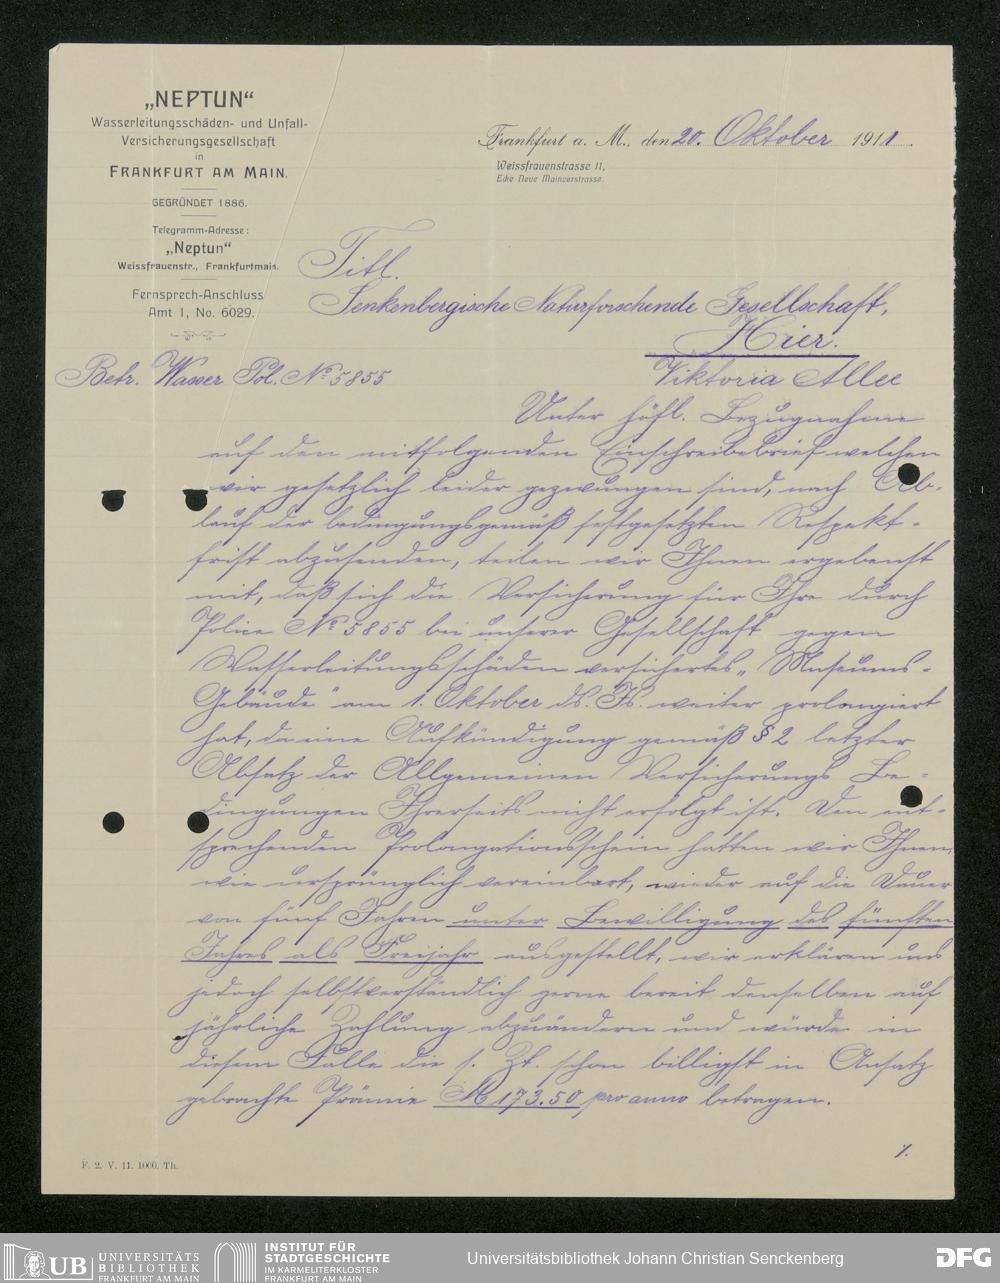 „NEPTUN“
Wasserleitungsschäden- und Unfall-
Versicherungsgesellschaft
in
FRANKFURT AM MAIN.
GEGRÜNDET 1886.
Telegramm-Adresse:
„Neptun“
Weissfrauenstr., Frankfurtmain.
Fernsprech-Anschluss
Amt I, No. 6029.
Frankfurt a. M., den 20. Oktober 1911.
Weissfrauenstrasse 11,
Ecke Neue Mainzerstrasse.
Titl.
Senkenbergische Naturforschende Gesellschaft,
Hier.
Viktoria Allee
Betr. Wasser Pol. No 5855
Unter höfl. Bezugnahme
auf den mitfolgenden Einschreibebrief welchen
wir gesetzlich leider gezwungen sind, nach Ab-
lauf der bedingungsgemäß festgesetzten Respekt-
frist abzusenden, teilen wir Ihnen ergebenst
mit, daß sich die Versicherung für Ihre durch
Police No 5855 bei unserer Gesellschaft gegen
Wasserleitungsschäden versichertes „Museums-
Gebäude“ am 1. Oktober ds. Js. weiter prolongiert
hat, da eine Aufkündigung gemäß § 2 letzter
Absatz der Allgemeinen Versicherungs Be-
dingungen Ihrerseits nicht erfolgt ist. Den ent-
sprechenden Prolongationsschein hatten wir Ihnen,
wie ursprünglich vereinbart, wieder auf die Dauer
von fünf Jahren unter Bewilligung des fünften
Jahres als Freijahr ausgestellt, wir erklären uns
jedoch selbstverständlich gerne bereit denselben auf
jährliche Zahlung abzuändern und würde in
diesem Falle die s. Zt. schon billigst in Ansatz
gebrachte Prämie M 173.50 pro anno betragen.
F. 2. V. 11. 1000. Th.
UB UNIVERSITÄTS
BIBLIOTHEK
FRANKFURT AM MAIN
INSTITUT FÜR
STADTGESCHICHTE
IM KARMELITERKLOSTER
FRANKFURT AM MAIN
Universitätsbibliothek Johann Christian Senckenberg
DFG